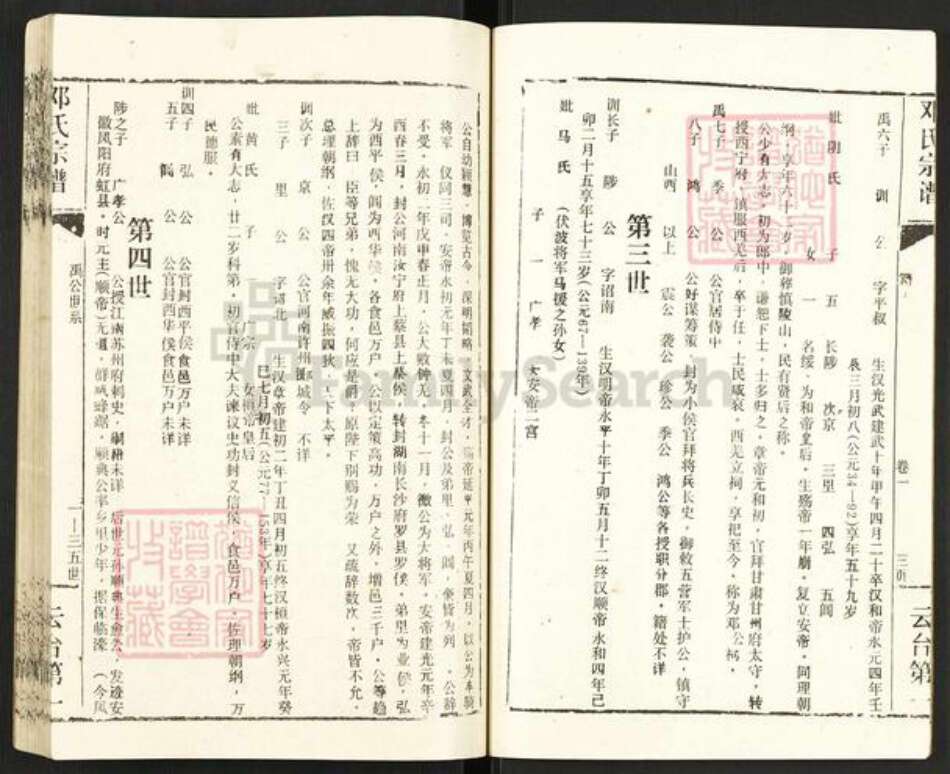 邓氏宗谱
卷一
三页
云台第一
禹六子 训 公 字平叔 生汉光武建武十年甲午四月二十卒汉和帝永元四年壬
辰三月初八(公元34—92)享年五十九岁
妣阴氏 子 五 长陟 次京 三里 四弘 五阊
女 一 名绥,为和帝皇后,生殇帝一年崩,复立安帝,同理朝
纲,享年六十二岁,御葬慎陵山,民有贤后之称。
公少有大志,初为郎中,谦恕下士,士多归之,章帝元和初,官拜甘肃甘州府太守,转
授西宁府,镇服西羌后,卒于任,士民咸哀,西羌立祠,享祀至今,称为邓公祠。
禹七子 季 公 公官居侍中
八子 鸿 公 公好谋筹策 封为小侯官拜将兵长史,御敕五营军士护公,镇守
山西 以上 震公 袭公 珍公 季公 鸿公等各授职分郡,籍处不详
第三世
训长子 陟 公 字诏南 生汉明帝永平十年丁卯五月十二终汉顺帝永和四年己
卯二月十五享年七十三岁(公元67—139年)
妣马氏 (伏波将军马援之孙女)
子 一 广孝 女安帝三宫
公自幼颖慧,博览古今,深明韬略,文武全才,殇帝延平元年丙午夏四月,以公为车骑
将军 仪同三司,安帝永初元年丁未夏四月,封公及弟里、弘、阊,奎皆为列 ,公辞
不受,永初二年戊申春正月,公大败钟羌,冬十一月,徵公为大将军,安帝建光元年辛
酉春三月,封公河南汝宁府上蔡县上蔡侯,转封湖南长沙府罗县罗侯,弟里为业侯,弘
为西平侯,阊为西华侯,各食邑万户 公以定策高功,万户之外,增邑三千户,公等趋
上辞曰 臣等兄弟,愧无大功,何应是謂?原陛下别赐为荣 又疏辞数次,帝皆不允,
总理朝纲,佐汉四帝卅余年威振四狄,天下太平。
训次子 京 公 公官河南许州郾城令 不详
三子 里 公 字诏北 生汉章帝建初二年丁丑四月初五终汉桓帝永兴元年癸
巳七月初五(公元77—153年)享年七十七岁
妣黄氏 子 一 广宗 女桓帝皇后
公素有大志,廿二岁科第,初官侍中大夫谏议史功封义信侯,食邑万户,佐理朝纲,万
民德服。
训四子 弘 公 公官封西平侯食邑万户未详
五子 阊 公 公官封西华侯食邑万户未详
第四世
陟之子 广孝公 公授江南苏州府刺史,嗣裔未详 后世元孙顺兴生愈公,发迹安
徽凤阳府虹县,时元主(顺帝)无道,群雄蜂踞,顺兴公率乡里少年,捍保临濠 (今凤
禹公世系
一—三五世
邓氏宗谱
云台第一
FamilySearch